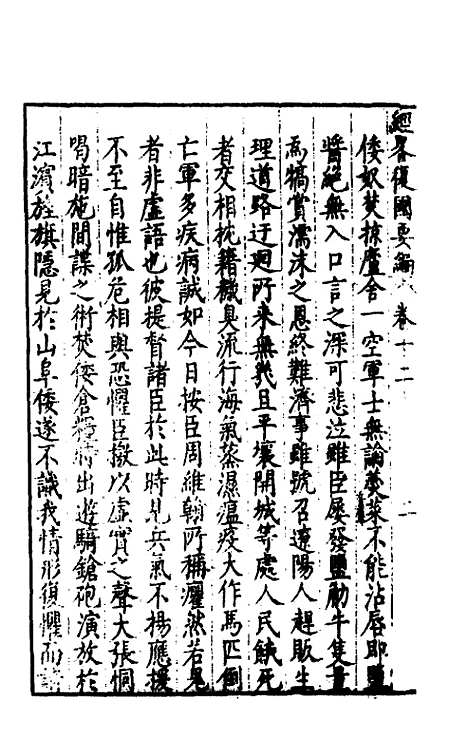 經畧復國要編 卷十二
倭奴焚掠廬舍一空軍士無論蔬菜不能沾唇即鹽
醬絕無入口言之深可悲泣雖臣屢發鹽觔牛隻量
為犒賞濡沫之恩終難濟事雖號召遼陽人趕販生
理道路迂迴所來無幾且平壤開城等處人民餓死
者交相枕籍穢臭流行海氣蒸濕瘟疫大作馬匹倒
亡軍多疾病誠如今日按臣周維翰所稱癯然若鬼
者非虛語也彼提督諸臣於此時見兵氣不揚應援
不至自惟孤危相與恐懼臣檄以虛實之聲大張恫
喝暗施間諜之術焚倭倉糧時出遊騎鎗砲演放於
江濱旌旗隱見於山阜倭遂不識我情形復懼而